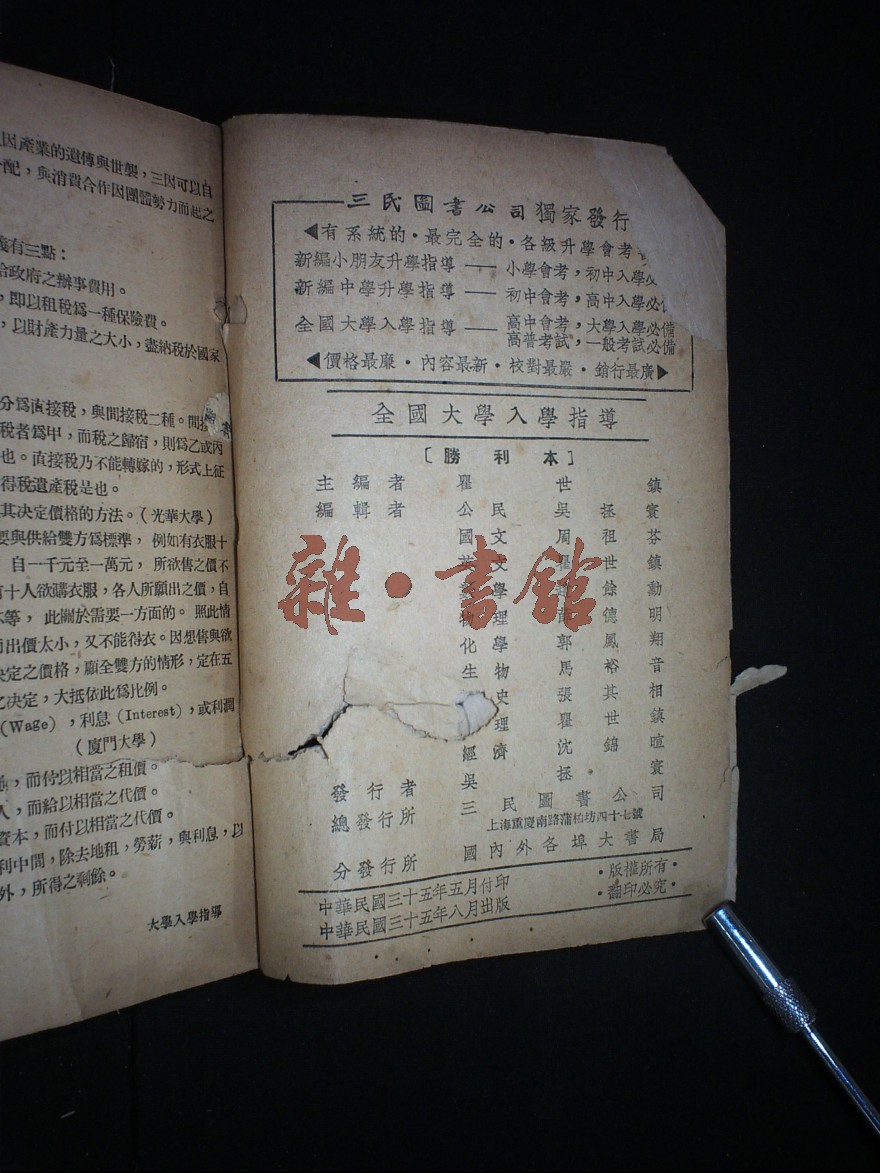 因產業的遺傳與世襲，三因可以自
配，與消費合作因團體勢力而起之
義有三點：
給政府之辦事費用。
，即以租稅爲一種保險費。
，以財產力量之大小，盡納稅於國家
分爲直接稅，與間接稅二種。間接
稅者爲甲，而稅之歸宿，則爲乙或丙
也。直接稅乃不能轉嫁的，形式上征
得稅遺產稅是也。
其決定價格的方法。（光華大學）
要與供給雙方爲標準，例如有衣服十
自一千元至一萬元，所欲售之價不
有十人欲購衣服，各人所願出之價，自
等，此關於需要一方面的。照此情
而出價太小，又不能得衣。因想售與欲
決定之價格，顧全雙方的情形，定在五
之決定，大抵依此爲比例。
（Wage），利息（Interest），或利潤
（廈門大學）
，而付以相當之租價。
人，而給以相當之代價。
資本，而付以相當之代價。
利中間，除去地租，勞薪，與利息，以
外，所得之剩餘。
大學入學指導
三民圖書公司獨家發行
◀有系統的·最完全的·各級升學會考
新編小朋友升學指導——小學會考，初中入學必
新編中學升學指導——初中會考，高中入學必備
全國大學入學指導——高中會考，大學入學必備
高普考試，一般考試必備
◀價格最廉·內容最新·校對最嚴·銷行最廣▶
全國大學入學指導
［勝利本］
主編者 瞿世鎮
編輯者 公民 吳拯寰
國文 周祖芬
文 瞿世鎮
學 餘勳
物理 德明
化學 郭鳳翔
生物 馬裕音
史 張其相
理 瞿世鎮
經濟 沈錩暄
發行者 吳拯寰
總發行所 三民圖書公司
上海重慶南路蒲柏坊四十七號
分發行所 國內外各埠大書局
中華民國三十五年五月付印
中華民國三十五年八月出版
·版權所有·
·翻印必究·
雜·書館